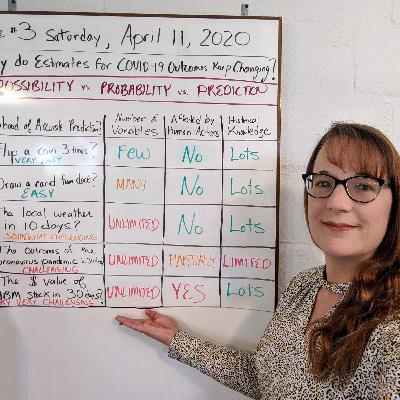 #3 Saturday, April 11, 2020
do Estimates for COVID-19 Outcomes Keep Changing?
POSSIBILITY vs. PROBABILITY vs. PREDICTION
of Accurate Prediction?
Number of Variables
Affected by Human Actions
Historical Knowledge
Flip a coin 3 times?
VERY EASY
FEW
No
Lots
Draw a card from deck?
EASY
MANY
No
Lots
The local weather in 10 days?
SOMEWHAT CHALLENGING
UNLIMITED
No
Lots
The outcomes of
coronavirus pandemic
CHALLENGING
UNLIMITED
LIMITED
The $ value of
stock in 30 days?
VERY CHALLENGING
UNLIMITED
YES
Lots